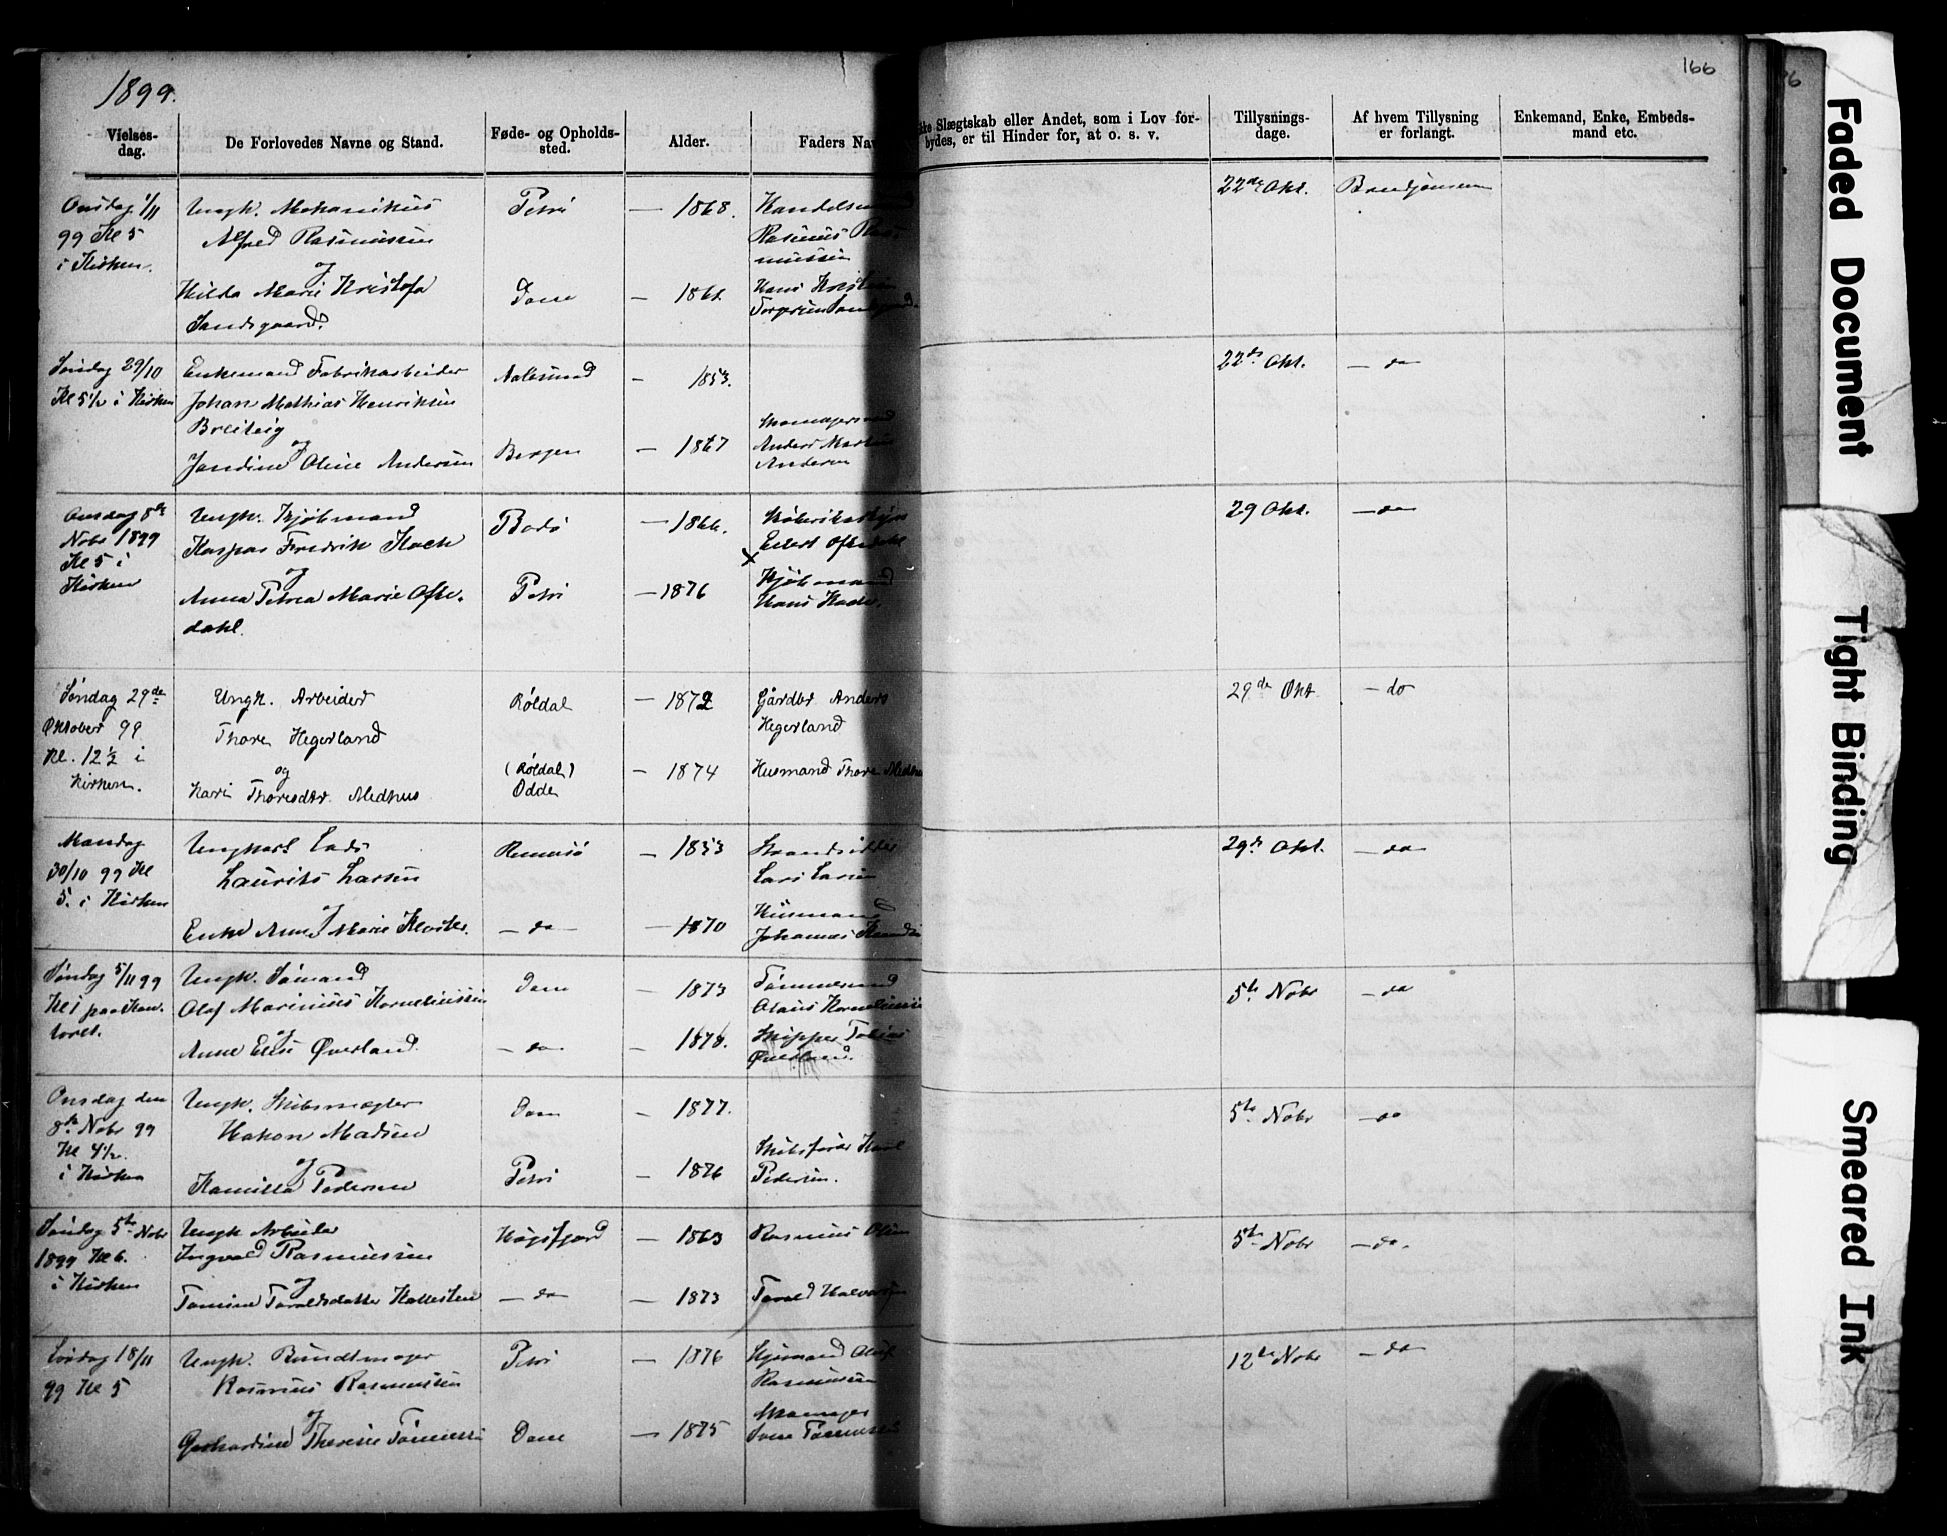 1899.
166
Vielses-
dag.
De Forlovedes Navne og Stand.
Føde- og Opholds-
sted.
Alder.
Faders Nav
Slægtskab eller Andet, som i Lov for-
bydes, er til Hinder for, at o. s. v.
Tillysnings-
dage.
Af hvem Tillysning
er forlangt.
Enkemand, Enke, Embeds-
mand etc.
Onsdag 1/11
99 Kl 5
i Kirken.
Ungk. Mekanikus
Alfred Rasmussen
og
Hilda Marie Kristofa
Sandsgaard.
Petri
Dom
— 1868.
Rasmus Ras
mussen
Hans Kristian
22de Okt.
Søndag 29/10
Kl 5½ i Kirken
Enkemand Fabrikarbeider
Johan Mathias Henriksen
Breiteig
og
Jandine Oline Andersen
Aalesund
Bergen
— 1853.
— 1867
Anders Martin
Andersen
22de Okt.
— do
Onsdag 8de
Nobr 1899
Kl 5 i
Kirken
Ungk. Kjøbmand
Kaspar Fredrik Koch
og
Anna Petrea Marie Ofte-
dahl.
Bodø
Petri
— 1866.
— 1876
Eilert Oftedahl
x
Kjøbmand
Hans Koch.
29 Okt.
— do
Søndag 29de
Oktober 99
Kl. 12½ i
Kirken.
Ungk. Arbeider
Thore Hegerland
og
Kari Thoresdtr. Medhus
Røldal
(Røldal)
Odde
— 1872
— 1874
Gårdbr Anders
Hegerland
Husmand Thore Medhus
29de Okt
— do
Mandag
30/10 99 Kl
5. i Kirken
Ungkarl Lads
Laurits Larsen
og
Enke Anne Marie Kloster.
Rennesø
— do —
— 1853
— 1870
Strandsidder
Lars Larsen
Husmand
Johannes
29de Okt.
— do
Søndag 5/11 99
Kl 1 paa Kon-
toret.
Ungk. Sømand
Olaf Marinius Korneliussen
og
Anne Elise Øverland
Dom
— do —
— 1873
— 1878.
Tømmermand
Olaus Korneliussen
Skipper Tobias
Øverland.
5te Nobr
— do
Onsdag den
8de Nobr 99
Kl 4½.
i Kirken
Ungk. Skibsmægler
Hakon Madsen
og
Kamilla Pedersen
Dom
Petri
— 1877.
— 1876
Skibsfører Karl
Pedersen.
5te Nobr
— do
Søndag 5te Nobr
1899 Kl 6.
i Kirken
Ungk Arbeider
Ingvald Rasmussen
og
Tomine Taraldsdatter Hallesteen
Høgsfjord
— do —
— 1863
— 1873
Rasmus Olsen
Tarald Halvorsen
5te Nobr
— do.
Lørdag 18/11
99 Kl 5
Ungk. Bundtmager
Rasmus Rasmussen
og
Gerhardine Therese Tønnesen
Petri
Dom
— 1876
— 1875
Rasmussen
Skomager
12te Nobr
— do
Faded Document
Tight Binding
Smeared Ink